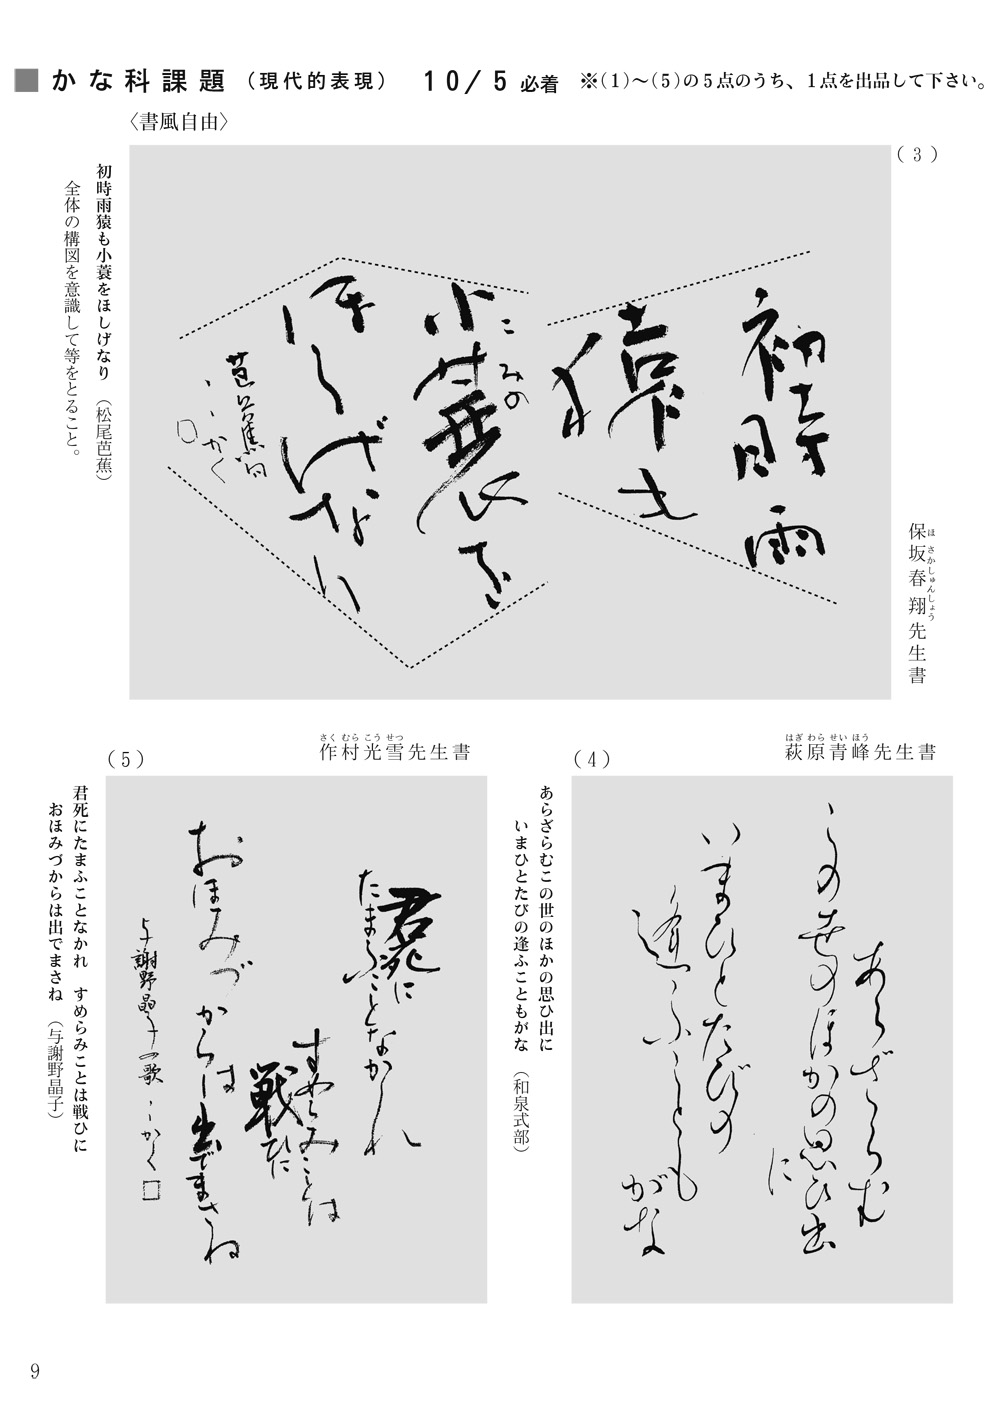 ■かな科課題（現代的表現）　10/5必着　※(1)～(5)の5点のうち、1点を出品して下さい。
〈書風自由〉
(3)
初時雨
猿も
小蓑を
こみの
ほしげなり
芭蕉句
かく
保坂春翔先生書
ほさかしゅんしょう
初時雨猿も小蓑をほしげなり（松尾芭蕉）
全体の構図を意識して等をとること。
(4)
萩原青峰先生書
はぎわらせいほう
あらざらむ
この世のほかの思ひ出
に
いまひとたびの
逢ふことも
がな
あらざらむこの世のほかの思ひ出に
いまひとたびの逢ふこともがな（和泉式部）
(5)
作村光雪先生書
さくむらこうせつ
君死に
たまふことなかれ
すめらみことは
戦ひに
おほみづからは出でまさね
与謝野晶子の歌　かく
君死にたまふことなかれ　すめらみことは戦ひに
おほみづからは出でまさね（与謝野晶子）
9